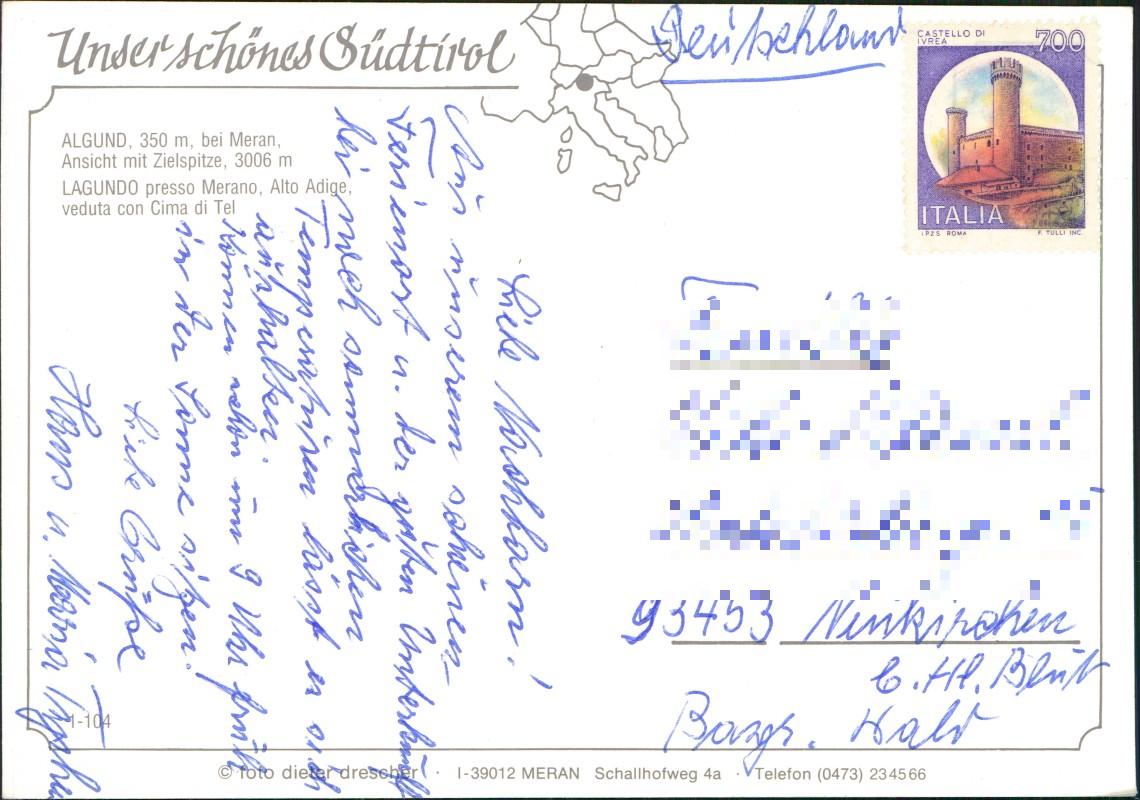 Unser schönes Südtirol
ALGUND, 350 m, bei Meran,
Ansicht mit Zielspitze, 3006 m
LAGUNDO presso Merano, Alto Adige,
veduta con Cima di Tel
Liebe Nachbarn!
Aus unserem schönen
Ferienort u. der guten Unterkunft
Bei noch sommerlichen
Temperaturen lässt es sich
aushalten.
Können schon um 9 Uhr früh
in der Sonne sitzen!
Liebe Grüße
Hans u. Maria
1-104
Deutschland
CASTELLO DI
IVREA
700
ITALIA
I.P.Z.S. ROMA
F. TULLI INC.
93453 Neukirchen
b. Hl. Blut
Bayr. Wald
© foto dieter drescher · I-39012 MERAN Schallhofweg 4a · Telefon (0473) 234566